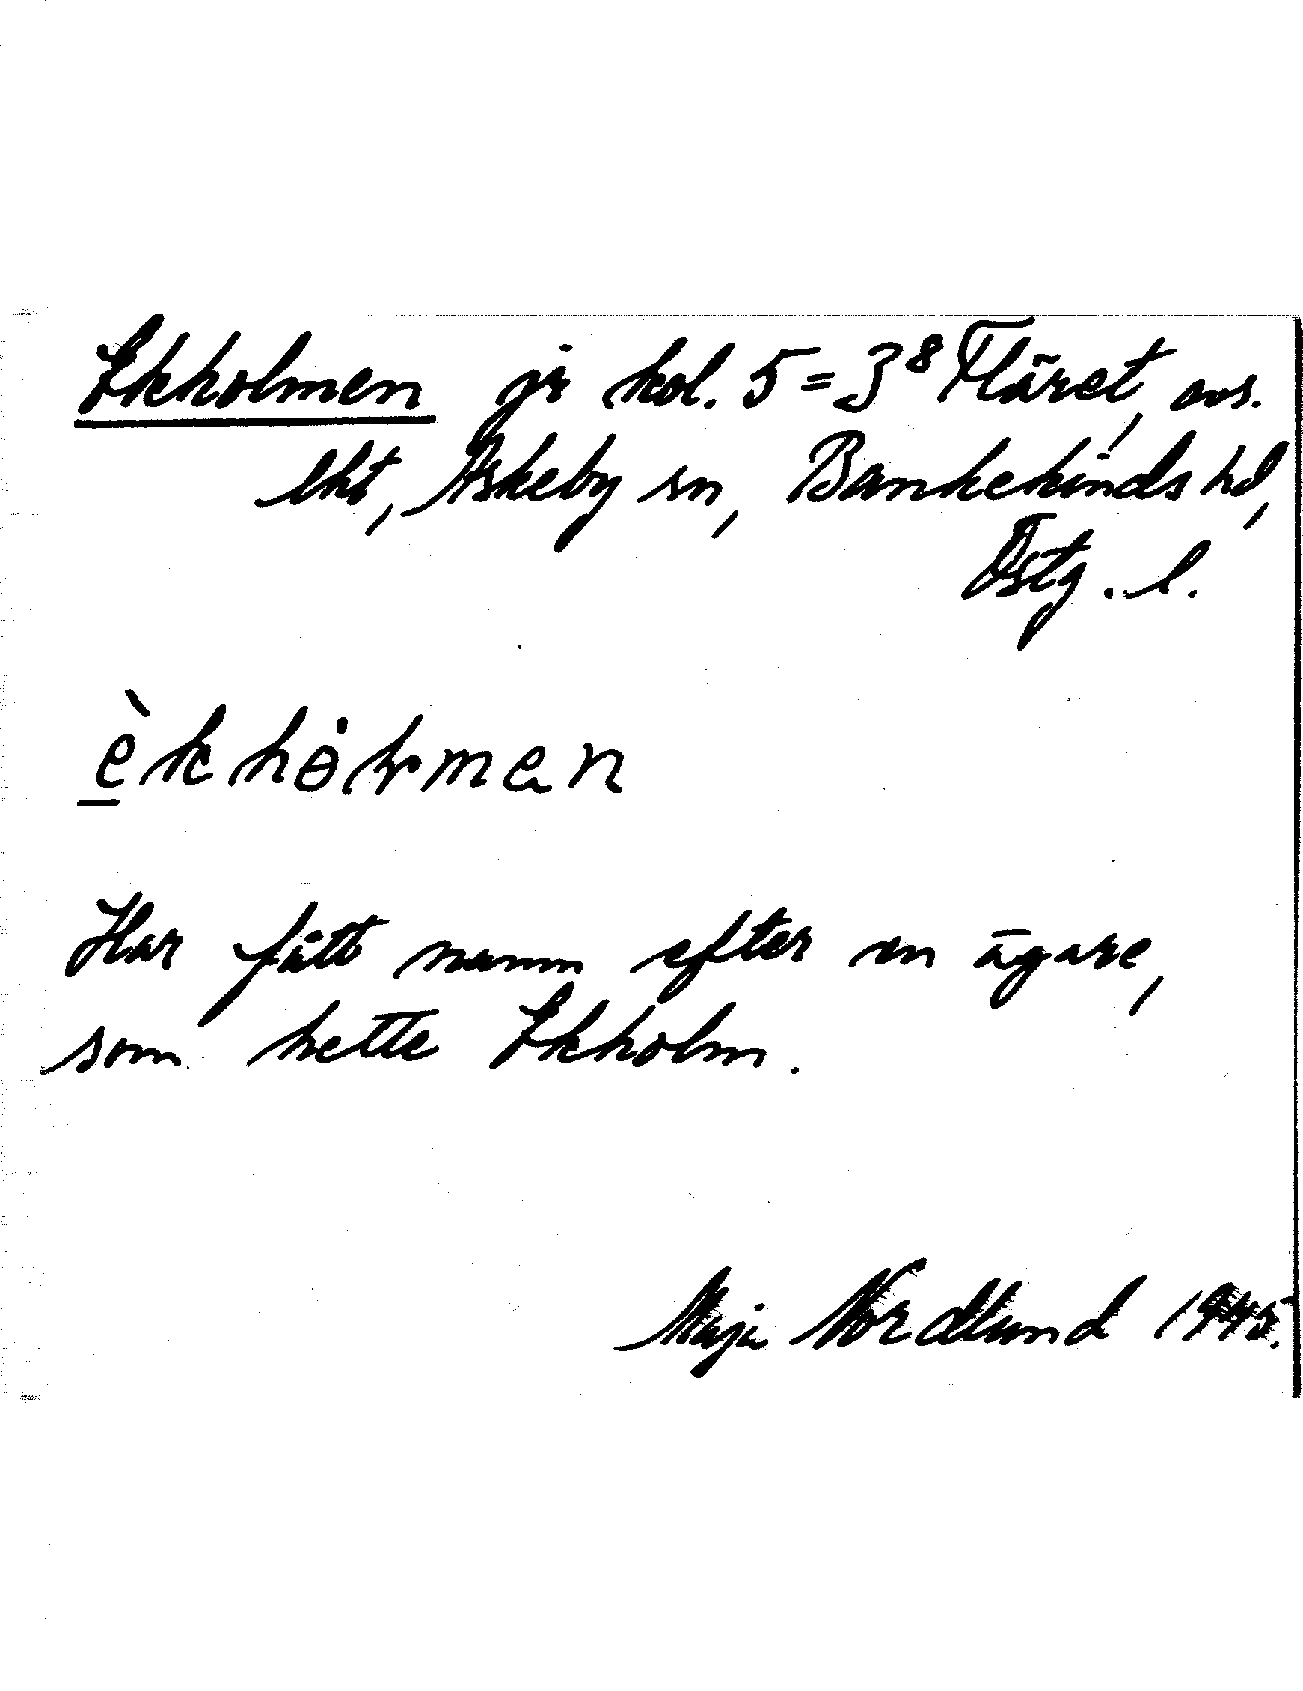 Ekholmen jr kol. 5 = 3⁸ Fläret, avs.
lht, Askeby sn, Bankekinds hd,
Östg. l.
èkhòɫmen
Har fått namn efter en ägare,
som hette Ekholm.
Maja Nordlund 1945.